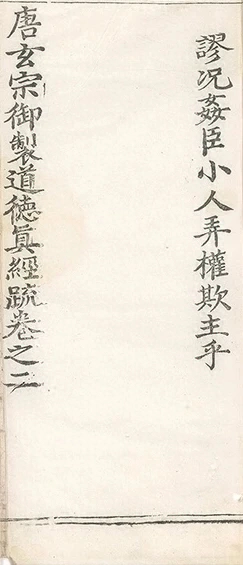 謬况姦臣小人弄權欺主乎
唐玄宗御製道德眞經䟽卷之二